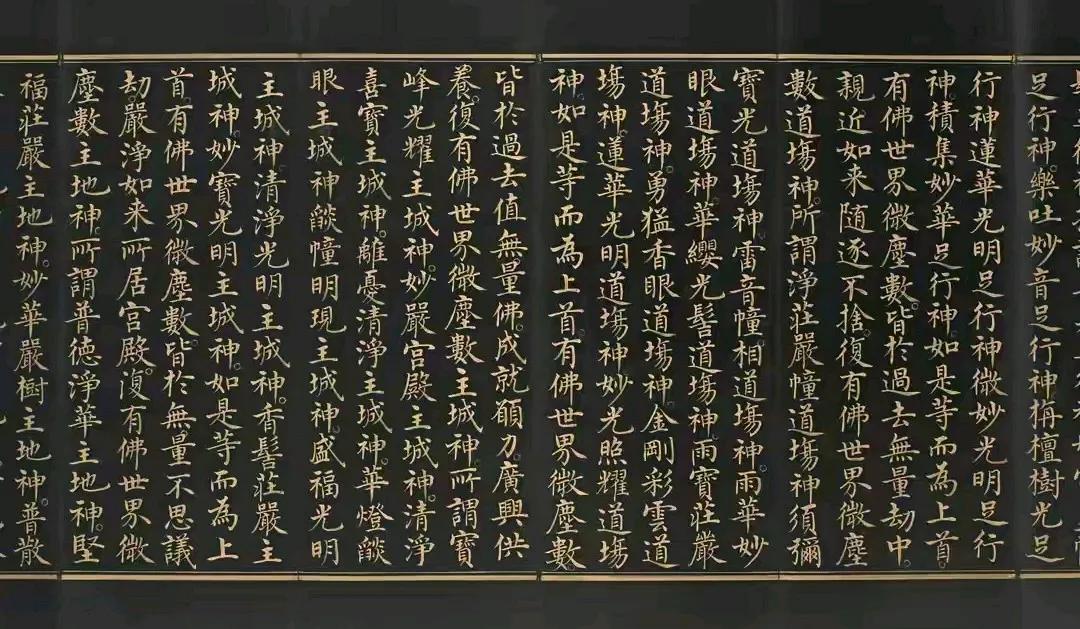 足行神樂吐妙音足行神栴檀樹光足
行神蓮華光明足行神微妙光明足行
神積集妙華足行神如是等而為上首
有佛世界微塵數皆於過去無量劫中
親近如来随逐不捨復有佛世界微塵
數道塲神所謂淨莊嚴幢道塲神須彌
寶光道塲神雷音幢相道塲神雨華妙
眼道塲神華纓光髻道塲神雨寶莊嚴
道塲神勇猛香眼道塲神金剛彩雲道
塲神蓮華光明道塲神妙光照耀道塲
神如是等而為上首有佛世界微塵數
皆於過去值無量佛成就願力廣興供
養復有佛世界微塵數主城神所謂寶
峰光耀主城神妙嚴宮殿主城神清淨
喜寶主城神離憂清淨主城神華燈燄
眼主城神燄幢明現主城神盛福光明
主城神清淨光明主城神香髻莊嚴主
城神妙寶光明主城神如是等而為上
首有佛世界微塵數皆於無量不思議
劫嚴淨如来所居宮殿復有佛世界微
塵數主地神所謂普德淨華主地神堅
福莊嚴主地神妙華嚴樹主地神普散